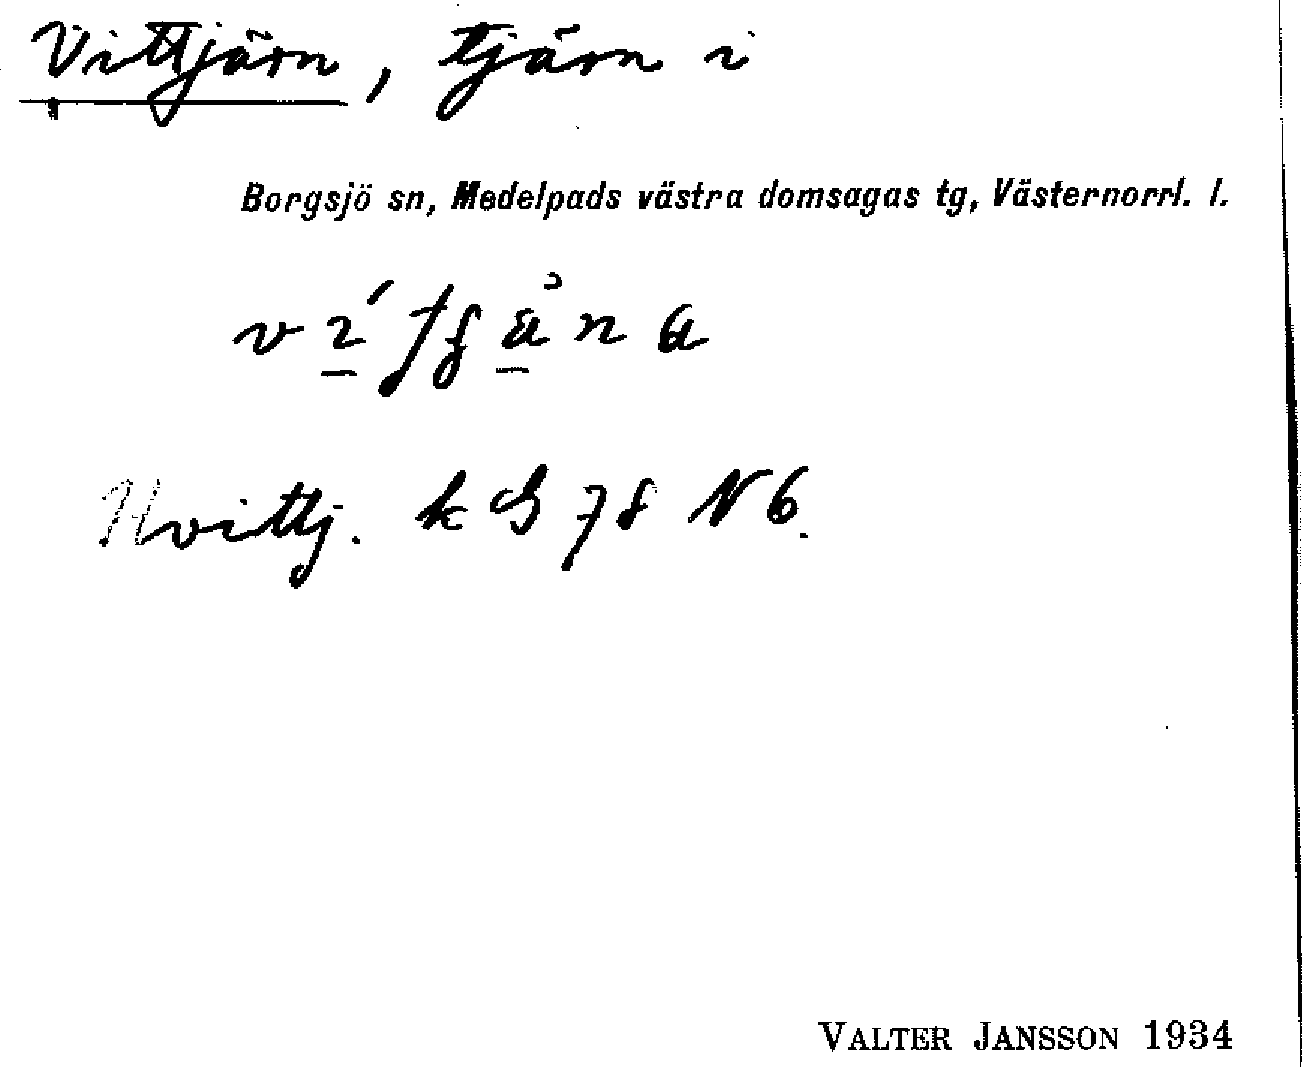 Vittjärn, tjärn i
Borgsjö sn, Medelpads västra domsagas tg, Västernorrl. l.
Hvittj. k G 78 N 6.
VALTER JANSSON 1934